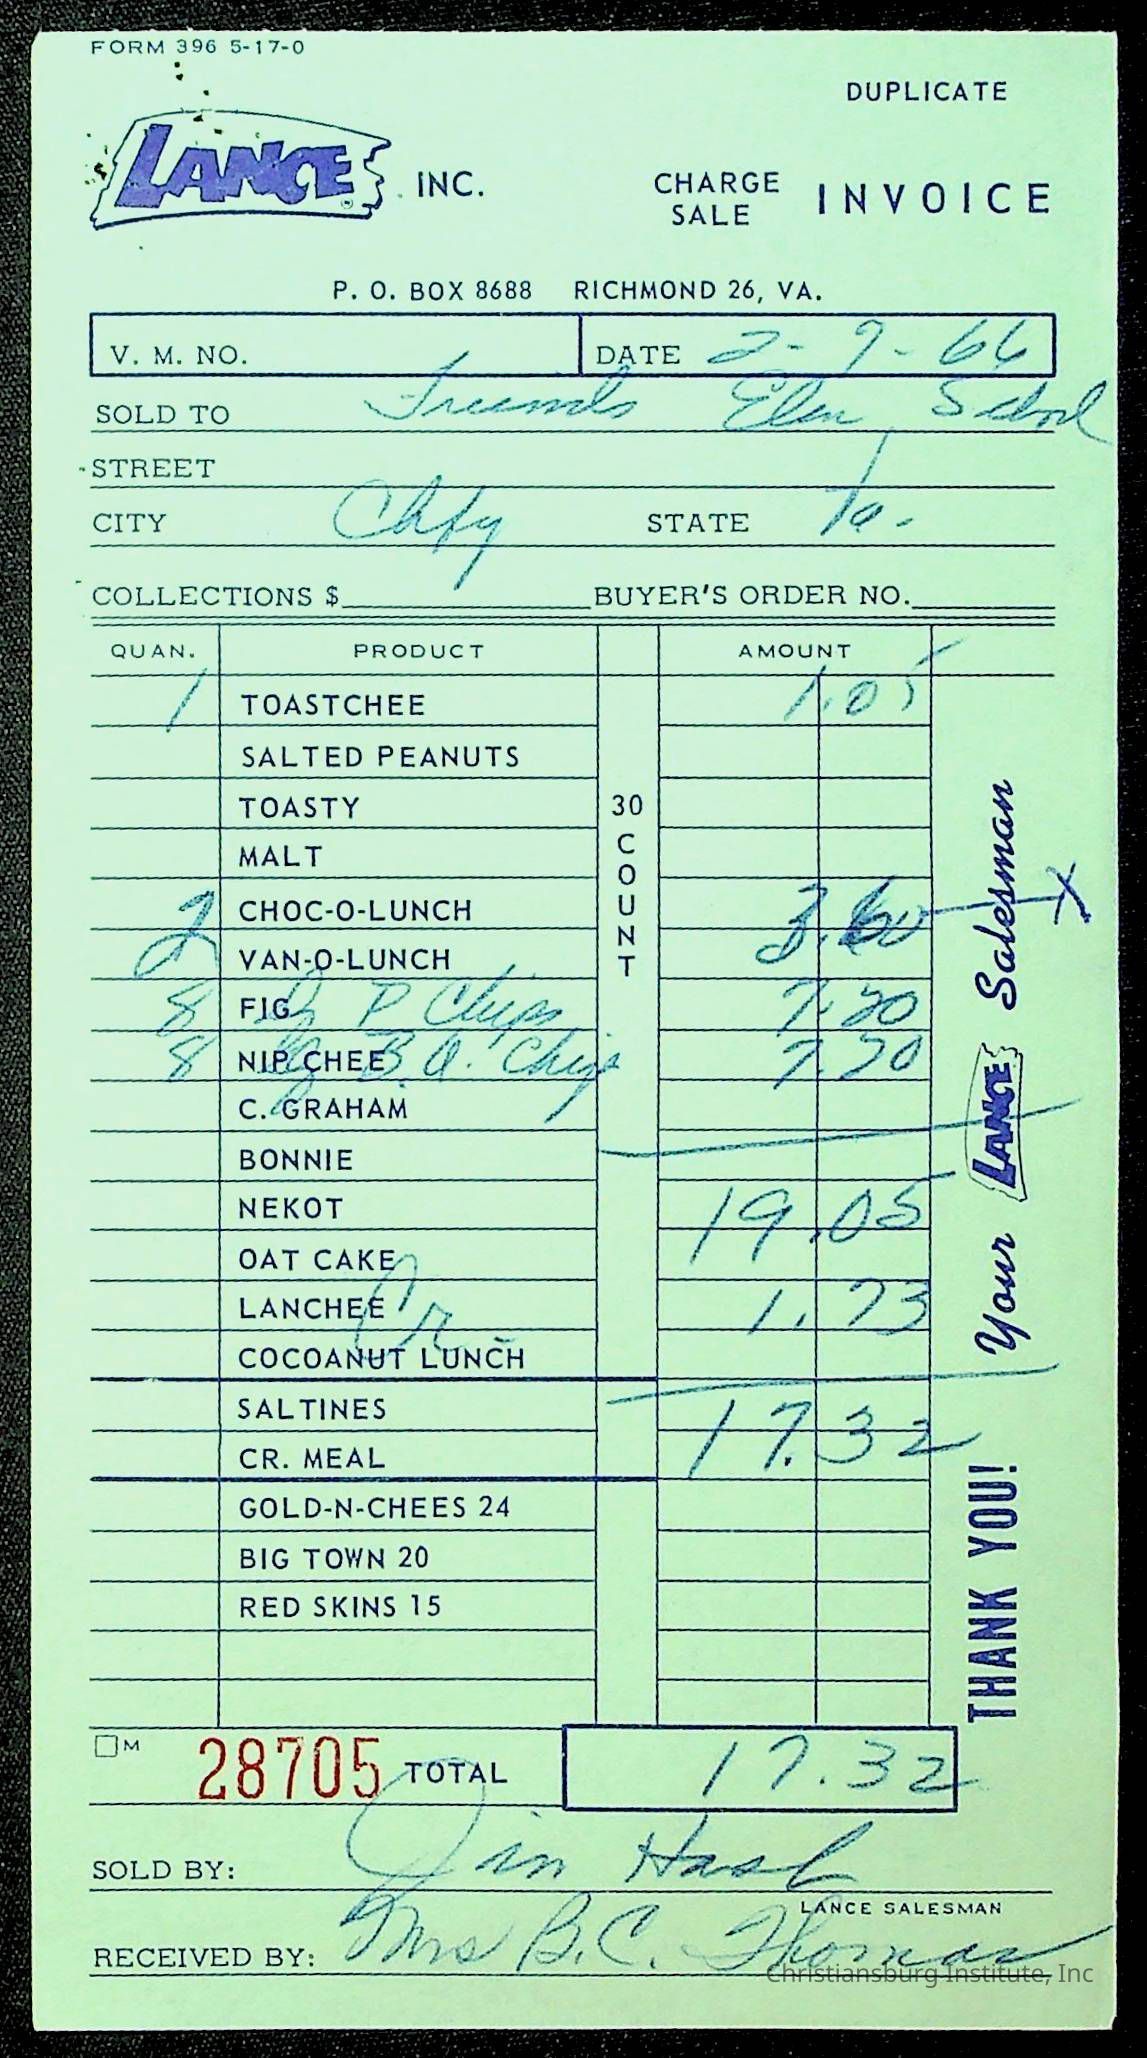 FORM 396 5-17-0
DUPLICATE
LANCE INC.
CHARGE SALE INVOICE
P. O. BOX 8688 RICHMOND 26, VA.
V. M. NO. DATE 2-9-66
SOLD TO Friends Elem School
STREET
CITY Chfg STATE Va.
COLLECTIONS $ BUYER'S ORDER NO.
QUAN. PRODUCT AMOUNT
1 TOASTCHEE 1.05
SALTED PEANUTS
TOASTY
MALT
2 CHOC-O-LUNCH 3.60 X
VAN-O-LUNCH
8 FIG P Chips 7.20
8 NIP CHEE B.Q. Chips 7.20
C. GRAHAM
BONNIE
NEKOT 19.05
OAT CAKE
LANCHEE Cr 1.73
COCOANUT LUNCH
SALTINES 17.32
CR. MEAL
GOLD-N-CHEES 24
BIG TOWN 20
RED SKINS 15
30 COUNT
Your LANCE Salesman
THANK YOU!
M 28705 TOTAL 17.32
SOLD BY: Jim
LANCE SALESMAN
RECEIVED BY: Mrs B.C. Thomas
Christiansburg Institute, Inc